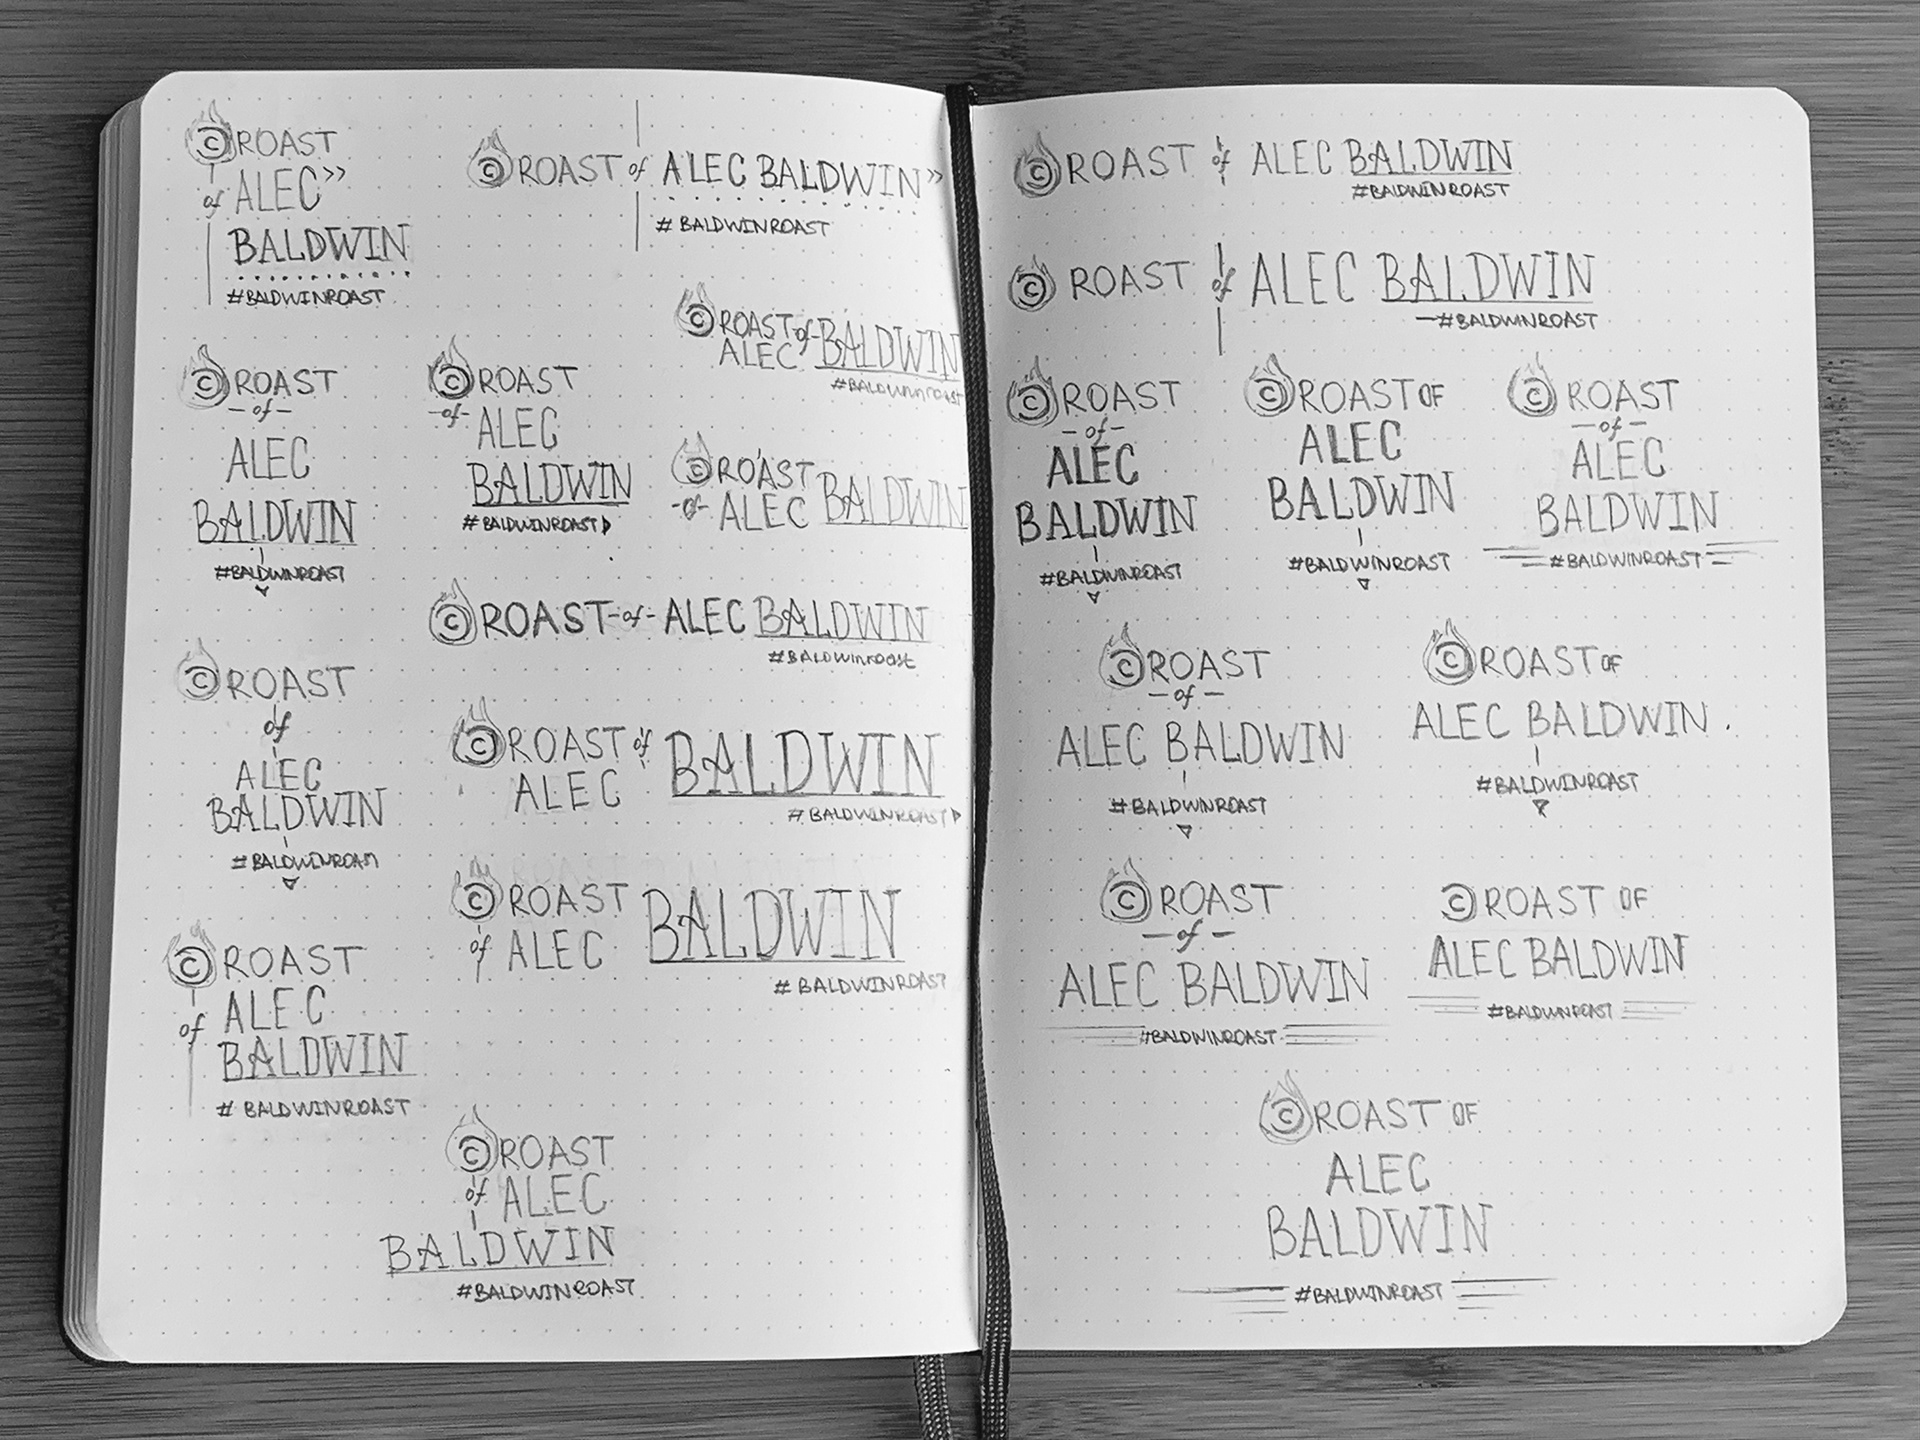 © ROAST
of ALEC >>
BALDWIN
#BALDWINROAST
© ROAST of ALEC BALDWIN >>
#BALDWINROAST
© ROAST of BALDWIN
ALEC
#BALDWINROAST
© ROAST
- of -
ALEC
BALDWIN
#BALDWINROAST
© ROAST
- of - ALEC
BALDWIN
#BALDWINROAST
© ROAST BALDWIN
- of - ALEC
© ROAST - of - ALEC BALDWIN
#BALDWINROAST
© ROAST
of
ALEC
BALDWIN
#BALDWINROAST
© ROAST of BALDWIN
ALEC
#BALDWINROAST
© ROAST BALDWIN
of ALEC
#BALDWINROAST
© ROAST
of ALEC
BALDWIN
#BALDWINROAST
© ROAST
of ALEC
BALDWIN
#BALDWINROAST
© ROAST of ALEC BALDWIN
#BALDWINROAST
© ROAST of ALEC BALDWIN
#BALDWINROAST
© ROAST
- of -
ALEC
BALDWIN
#BALDWINROAST
© ROAST OF
ALEC
BALDWIN
#BALDWINROAST
© ROAST
- of -
ALEC
BALDWIN
#BALDWINROAST
© ROAST
- of -
ALEC BALDWIN
#BALDWINROAST
© ROAST OF
ALEC BALDWIN.
#BALDWINROAST
© ROAST
- of -
ALEC BALDWIN
#BALDWINROAST
© ROAST OF
ALEC BALDWIN
#BALDWINROAST
© ROAST OF
ALEC
BALDWIN
#BALDWINROAST